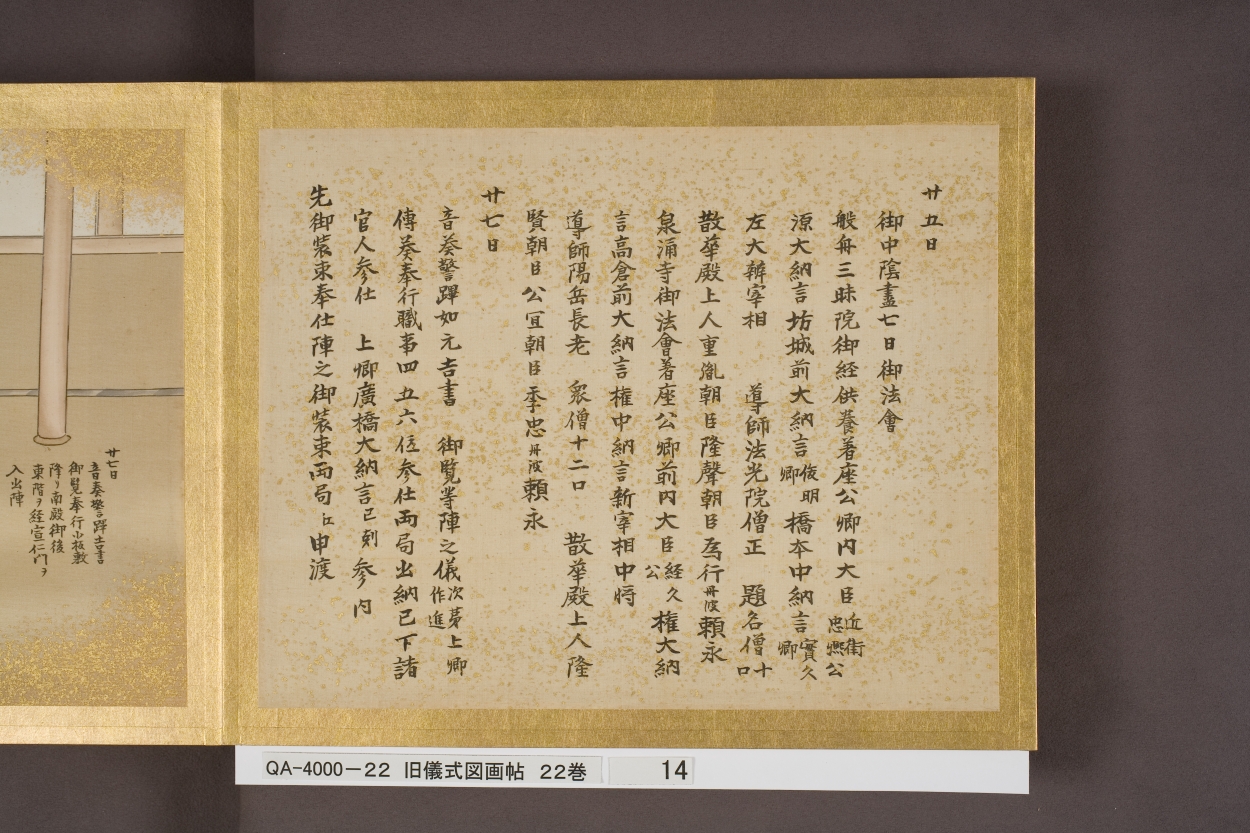 廿五日
御中陰盡七日御法會
般舟三昧院御経供養著座公卿内大臣近衛忠煕公
源大納言坊城前大納言俊明卿橋本中納言實久卿
左大辨宰相　導師法光院僧正　題名僧十口
散華殿上人重胤朝臣隆聲朝臣為行丹波頼永
泉涌寺御法會著座公卿前内大臣経久公権大納
言高倉前大納言権中納言新宰相中将
導師陽岳長老　衆僧十二口　散華殿上人隆
賢朝臣公冝朝臣季忠丹波頼永
廿七日
音奏警蹕如元吉書　御覧等陣之儀次第上卿作進
傳奏奉行職事四五六位参仕両局出納已下諸
官人参仕　上卿廣橋大納言已刻参内
先御装束奉仕陣之御装束両局江申渡
廿七日
音奏警蹕吉書
御覧奉行小板敷
降リ南殿御後
東階ヲ経宣仁門ヲ
入出陣
QA-4000-22　旧儀式図画帖　22巻　14